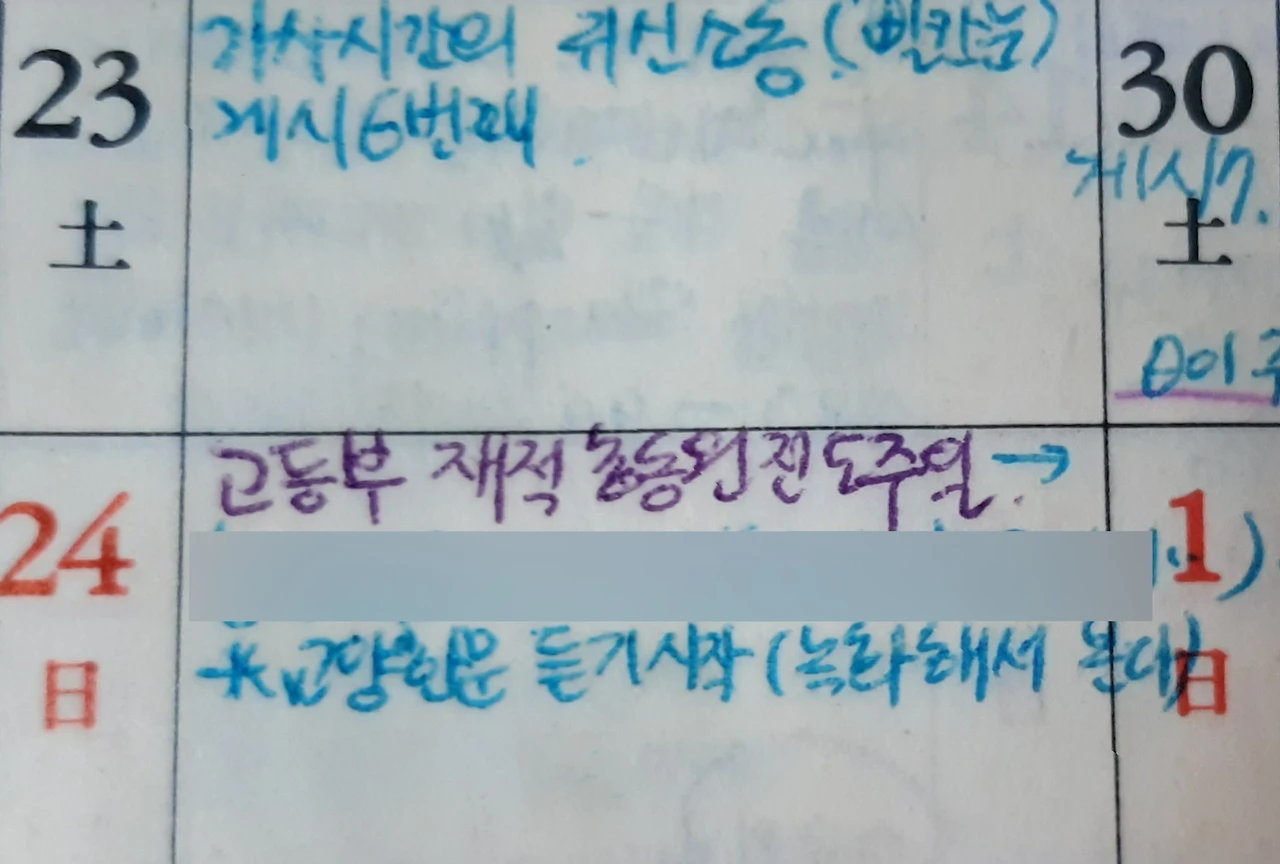 23
土
가사시간의 귀신소동 (빨간눈)
게시 6번째.
30
게시7.
土
24
日
고등부 재적 총동원전도주일 →
1
日
※ 교양한문 듣기시작 (녹화해서 본다)